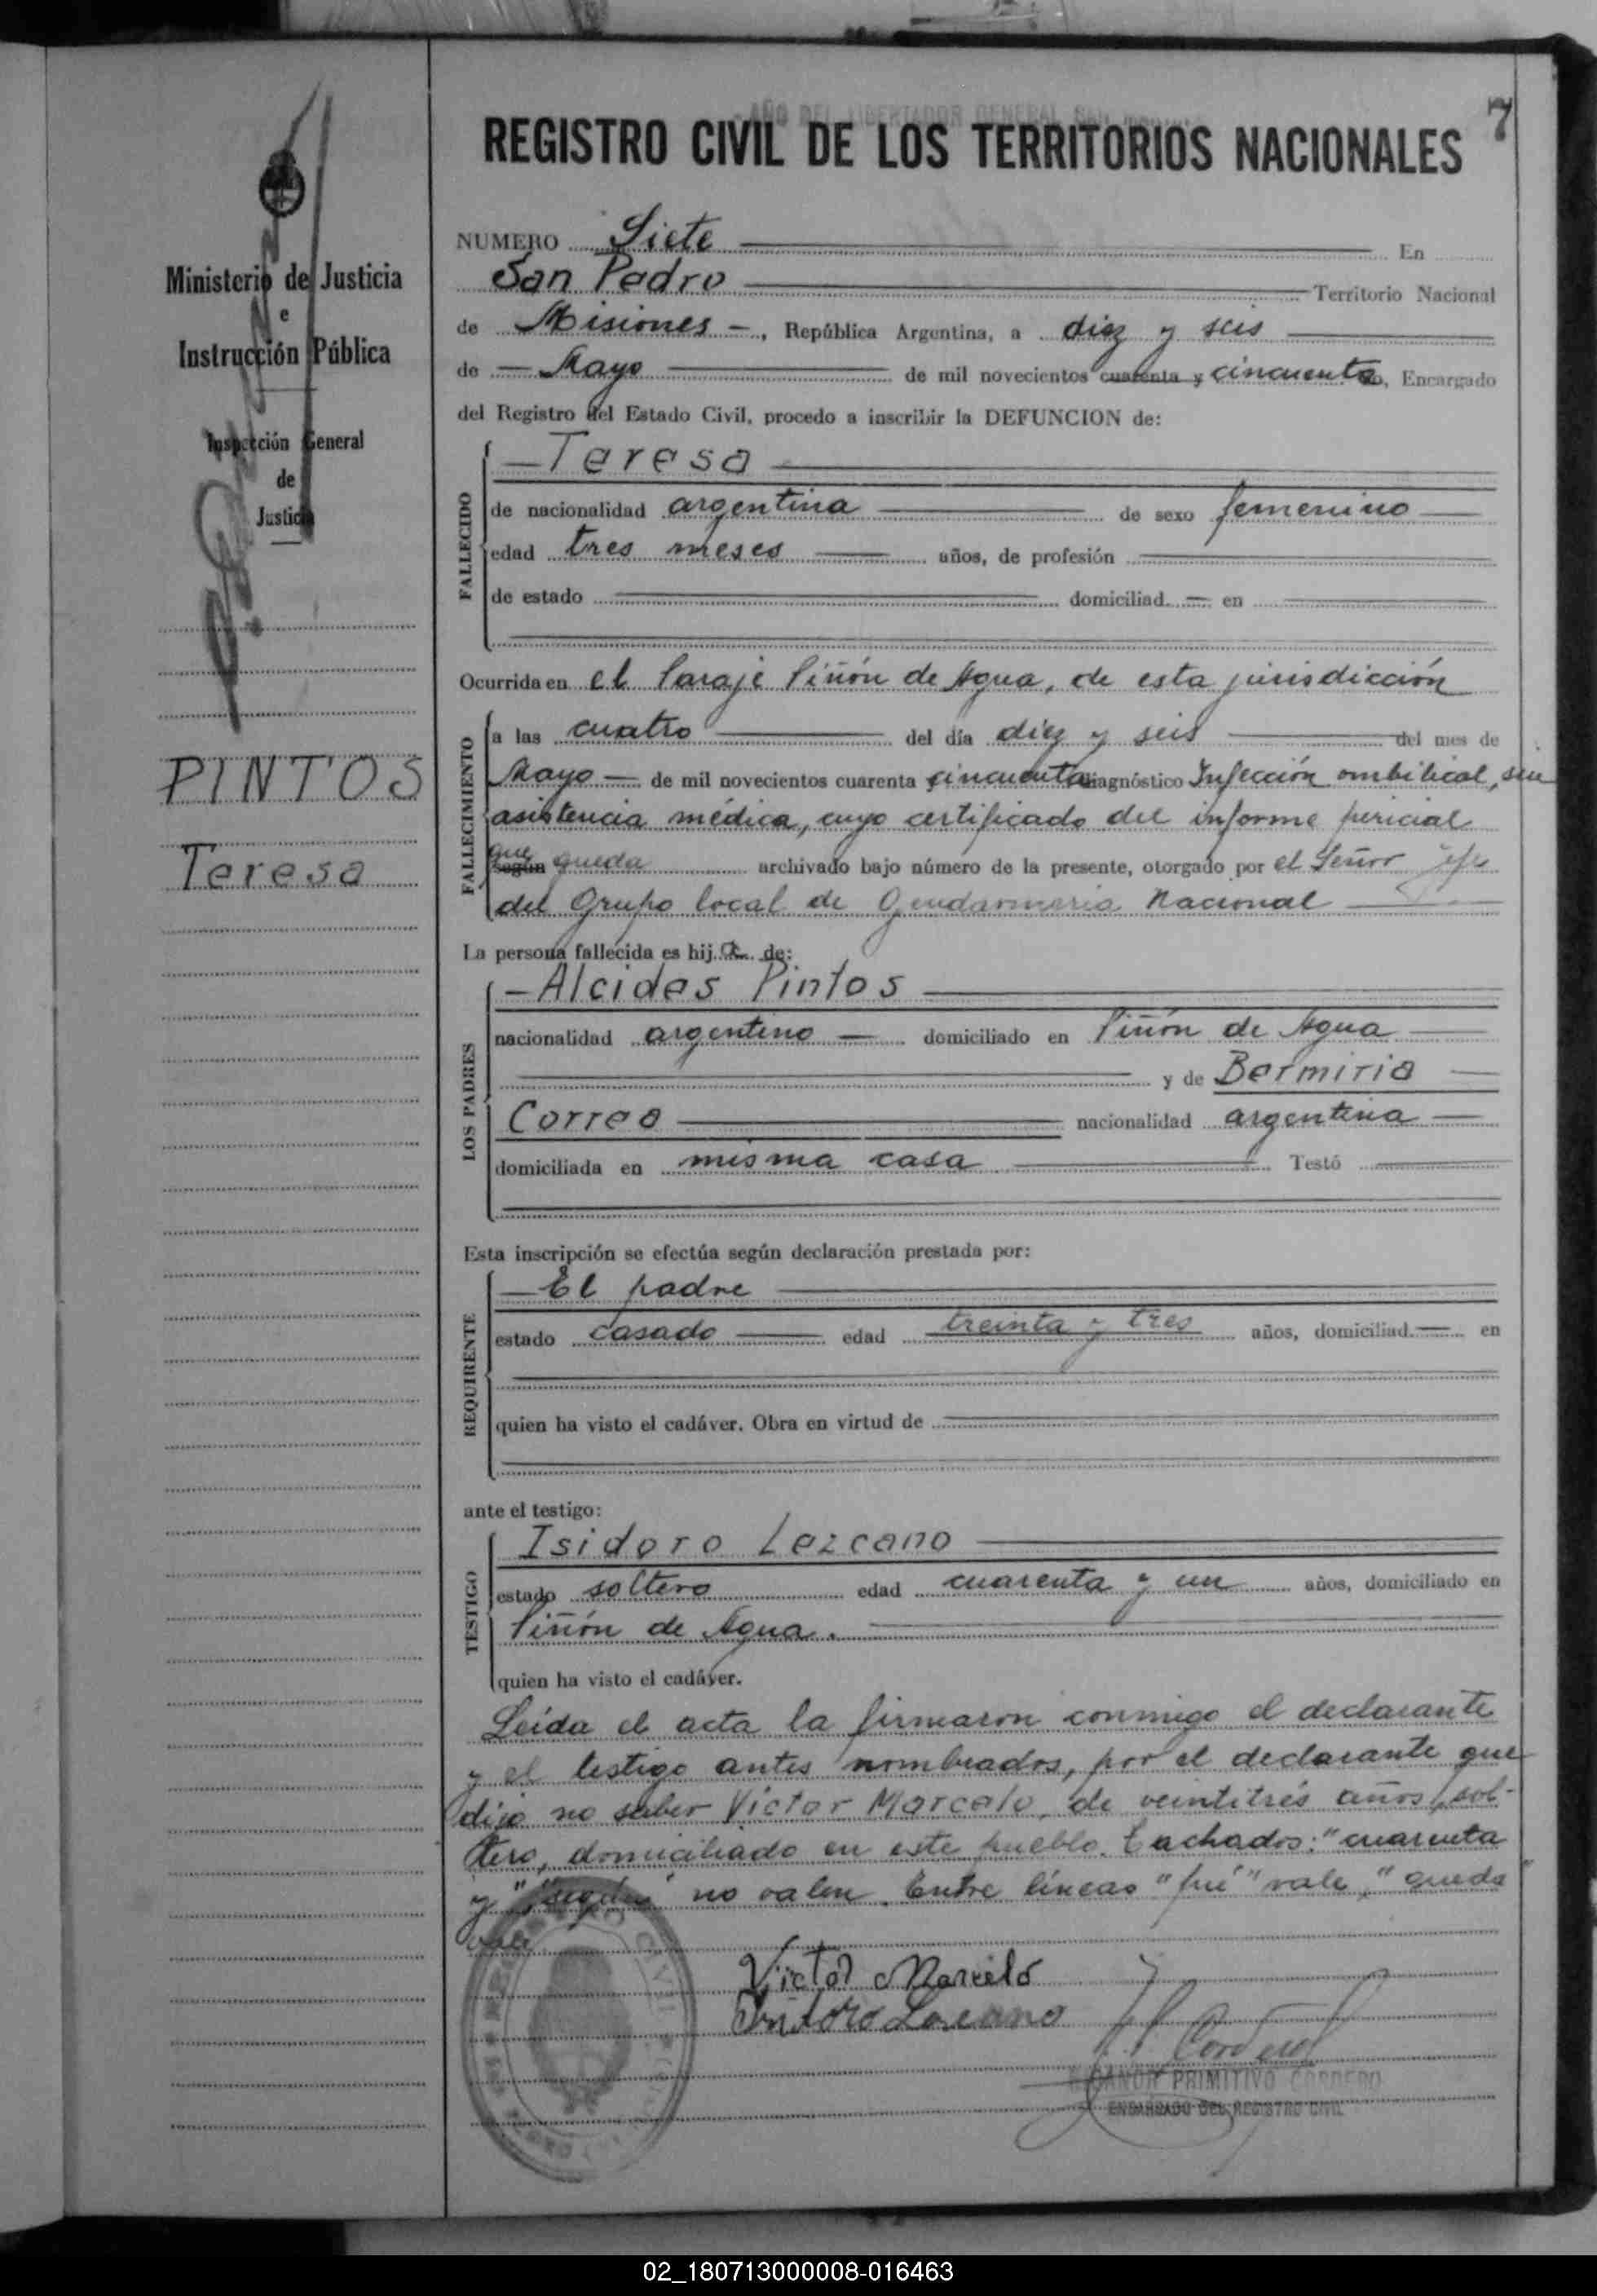 AÑO DEL LIBERTADOR GENERAL SAN
REGISTRO CIVIL DE LOS TERRITORIOS NACIONALES
7
Ministerio de Justicia
e
Instrucción Pública
Inspección General
de
Justicia
PINTOS
Teresa
NUMERO Siete En
San Pedro Territorio Nacional
de Misiones, República Argentina, a diez y seis
de Mayo de mil novecientos cuarenta y cincuenta, Encargado
del Registro del Estado Civil, procedo a inscribir la DEFUNCION de:
FALLECIDO
Teresa
de nacionalidad argentina de sexo femenino
edad tres meses años, de profesión
de estado domiciliad en
Ocurrida en el Paraje Piñón de Agua, de esta jurisdicción
FALLECIMIENTO
a las cuatro del día diez y seis del mes de
Mayo de mil novecientos cuarenta cincuenta diagnóstico Infección ombilical, sin
asistencia médica, cuyo certificado del informe pericial
que
según queda archivado bajo número de la presente, otorgado por el Señor Jefe
del Grupo local de Gendarmeria Nacional
La persona fallecida es hija de:
LOS PADRES
Alcides Pintos
nacionalidad argentino domiciliado en Piñón de Agua
y de Bermiria
Correa nacionalidad argentina
domiciliada en misma casa Testó
Esta inscripción se efectúa según declaración prestada por:
REQUIRENTE
El padre
estado casado edad treinta y tres años, domiciliad en
quien ha visto el cadáver. Obra en virtud de
ante el testigo:
TESTIGO
Isidoro Lezcano
estado soltero edad cuarenta y un años, domiciliado en
Piñón de Agua.
quien ha visto el cadáver.
Leída el acta la firmaron conmigo el declarante
y el testigo antes nombrados, por el declarante que
dijo no saber Víctor Marcelo, de veintitrés años, sol-
tero, domiciliado en este pueblo. Tachados: "cuarenta
y" "según" no valen. Entre líneas "que" vale, "queda"
vale
Victor Marcelo
Isidoro Lezcano
Cordero
PRIMITIVO CORDERO
ENCARGADO DEL REGISTRO CIVIL
02_180713000008-016463